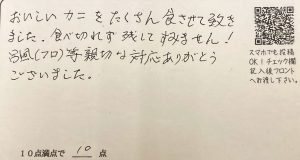 おいしいカニをたくさん食させて致き
ました。食べ切れず残してすみません!
呂風(フロ)等親切な対応ありがとう
ございました。
スマホでも投稿
OK！チェック欄
記入後フロント
へお渡し下さい。
10点満点で 10 点